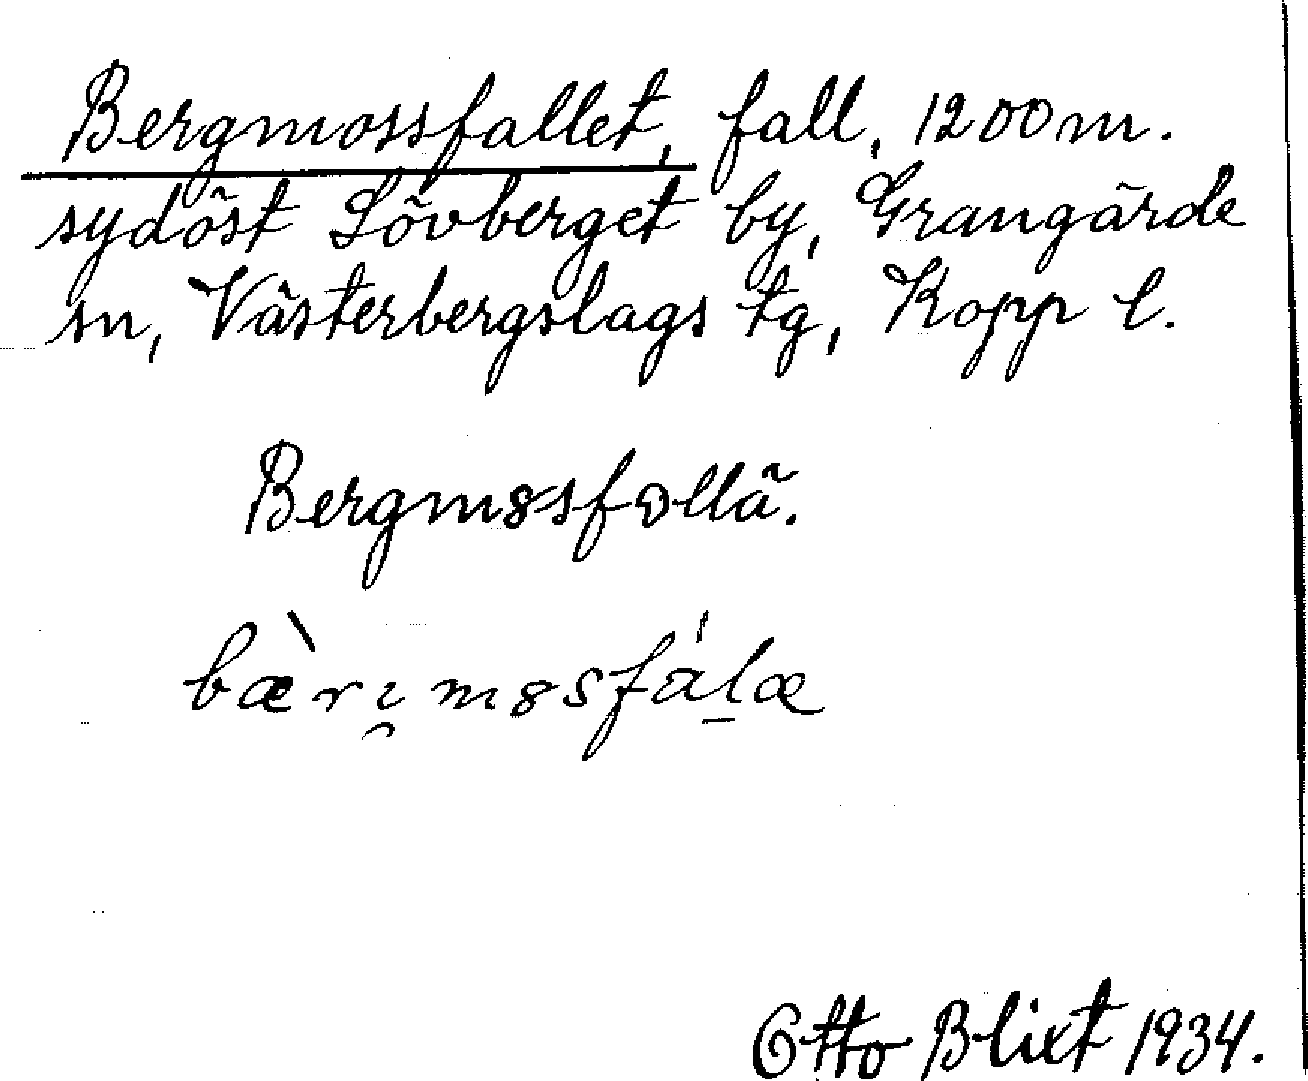 Bergmossfallet, fall, 1200 m.
sydöst Lövberget by, Grangärde
sn, Västerbergslags tg, Kopp l.
Bergm8sfɒllä.
bæ̀ri̯m8sfál̠æ
Otto Blixt 1934.